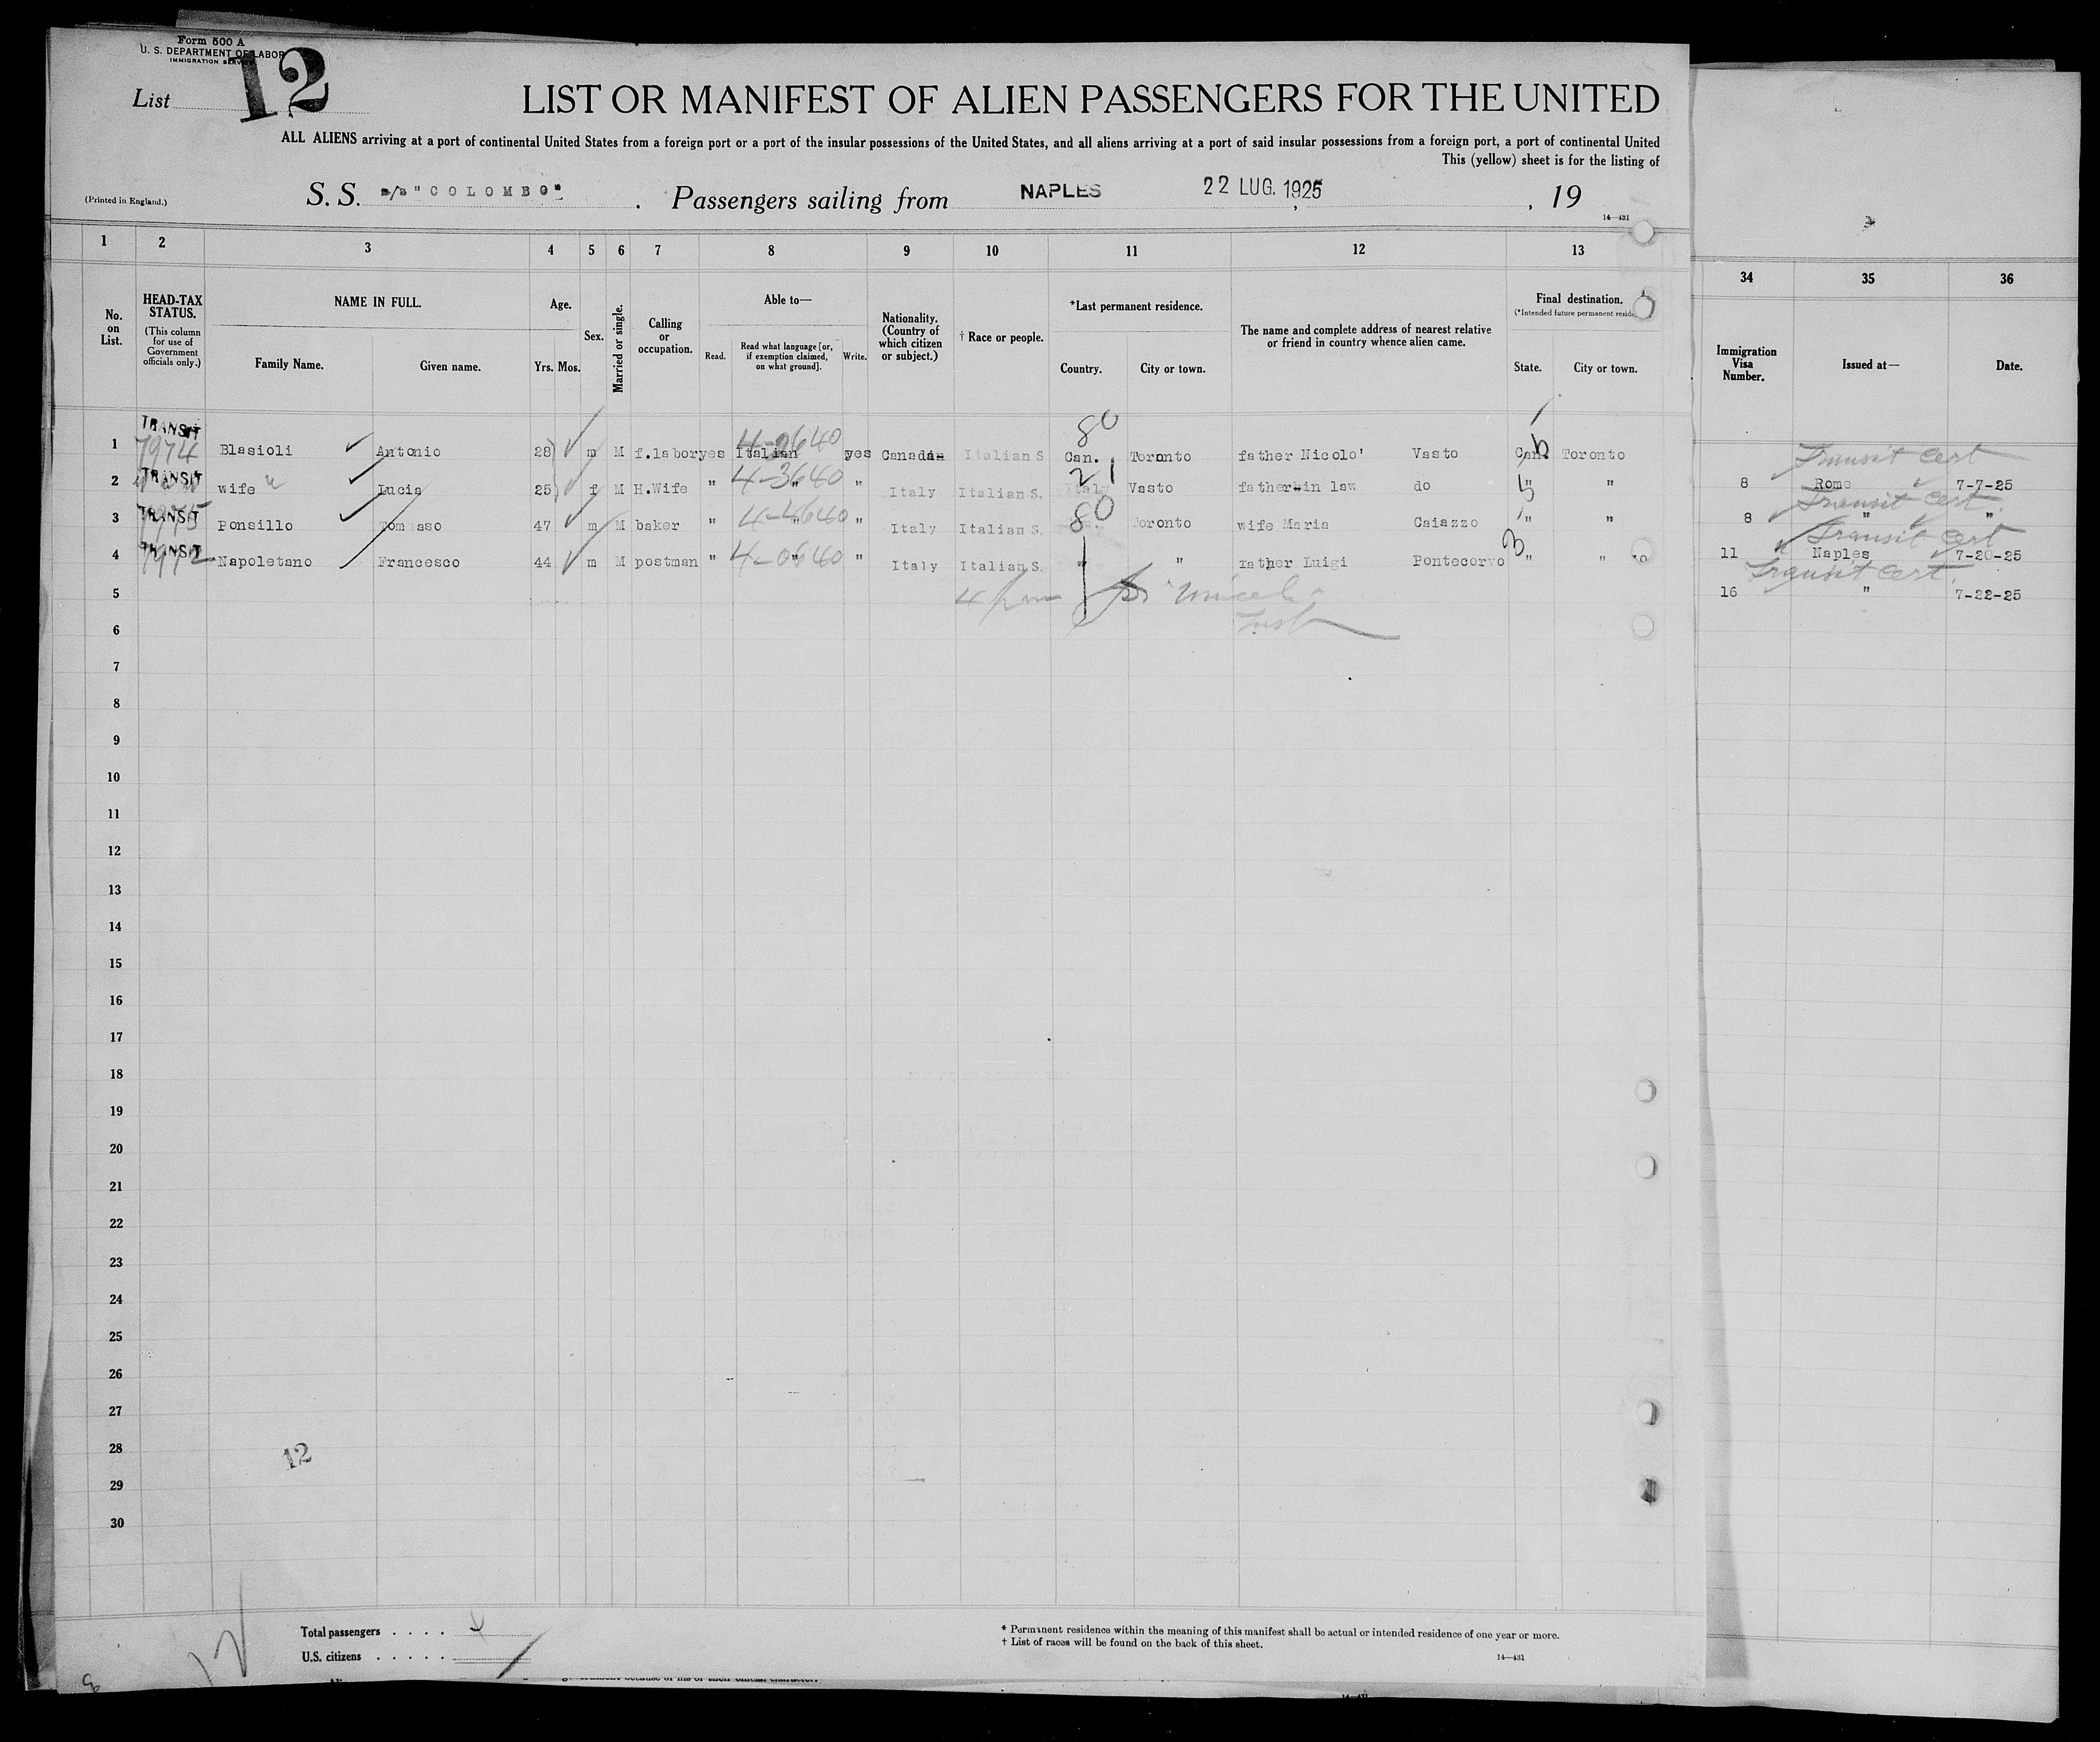 Form 500 A
U. S. DEPARTMENT OF LABOR
IMMIGRATION SERVICE
List 12
LIST OR MANIFEST OF ALIEN PASSENGERS FOR THE UNITED
ALL ALIENS arriving at a port of continental United States from a foreign port or a port of the insular possessions of the United States, and all aliens arriving at a port of said insular possessions from a foreign port, a port of continental United
This (yellow) sheet is for the listing of
(Printed in England.) S. S. s/s "COLOMBO" . Passengers sailing from NAPLES 22 LUG. 1925 , 19
14—431
1 2 3 4 5 6 7 8 9 10 11 12 13 34 35 36
No. on List.
HEAD-TAX STATUS.
(This column for use of Government officials only.)
NAME IN FULL.
Family Name. Given name.
Age.
Yrs. Mos.
Sex.
Married or single.
Calling or occupation.
Able to—
Read. Read what language [or, if exemption claimed, on what ground]. Write.
Nationality. (Country of which citizen or subject.)
† Race or people.
*Last permanent residence.
Country. City or town.
The name and complete address of nearest relative or friend in country whence alien came.
Final destination.
(*Intended future permanent
State. City or town.
Immigration Visa Number.
Issued at—
Date.
80
1 TRANSIT 7974 Blasioli Antonio 28 m M f.labor yes Italian 4-2640 yes Canadian Italian S Can. Toronto father Nicolo' Vasto Can. Toronto
Transit Cert
21
2 TRANSIT wife Lucia 25 f M H.Wife " 4-3640 " " Italy Italian S. Italy Vasto father-in law do " "
8 Rome 7-7-25
Transit Cert.
80
3 TRANSIT 7975 Ponsillo Tommaso 47 m M baker " 4-4640 " " Italy Italian S. Toronto wife Maria Caiazzo " "
8 " "
Transit Cert
4 TRANSIT 7972 Napoletano Francesco 44 m M postman " 4-0640 " " Italy Italian S. " " father Luigi Pontecorvo " "
11 Naples 7-20-25
Transit Cert.
5
16 " 7-22-25
6
7
8
9
10
11
12
13
14
15
16
17
18
19
20
21
22
23
24
25
26
27
28
12
29
30
Total passengers . . . . 4
U.S. citizens . . . . .
* Permanent residence within the meaning of this manifest shall be actual or intended residence of one year or more.
† List of races will be found on the back of this sheet.
14—431
12